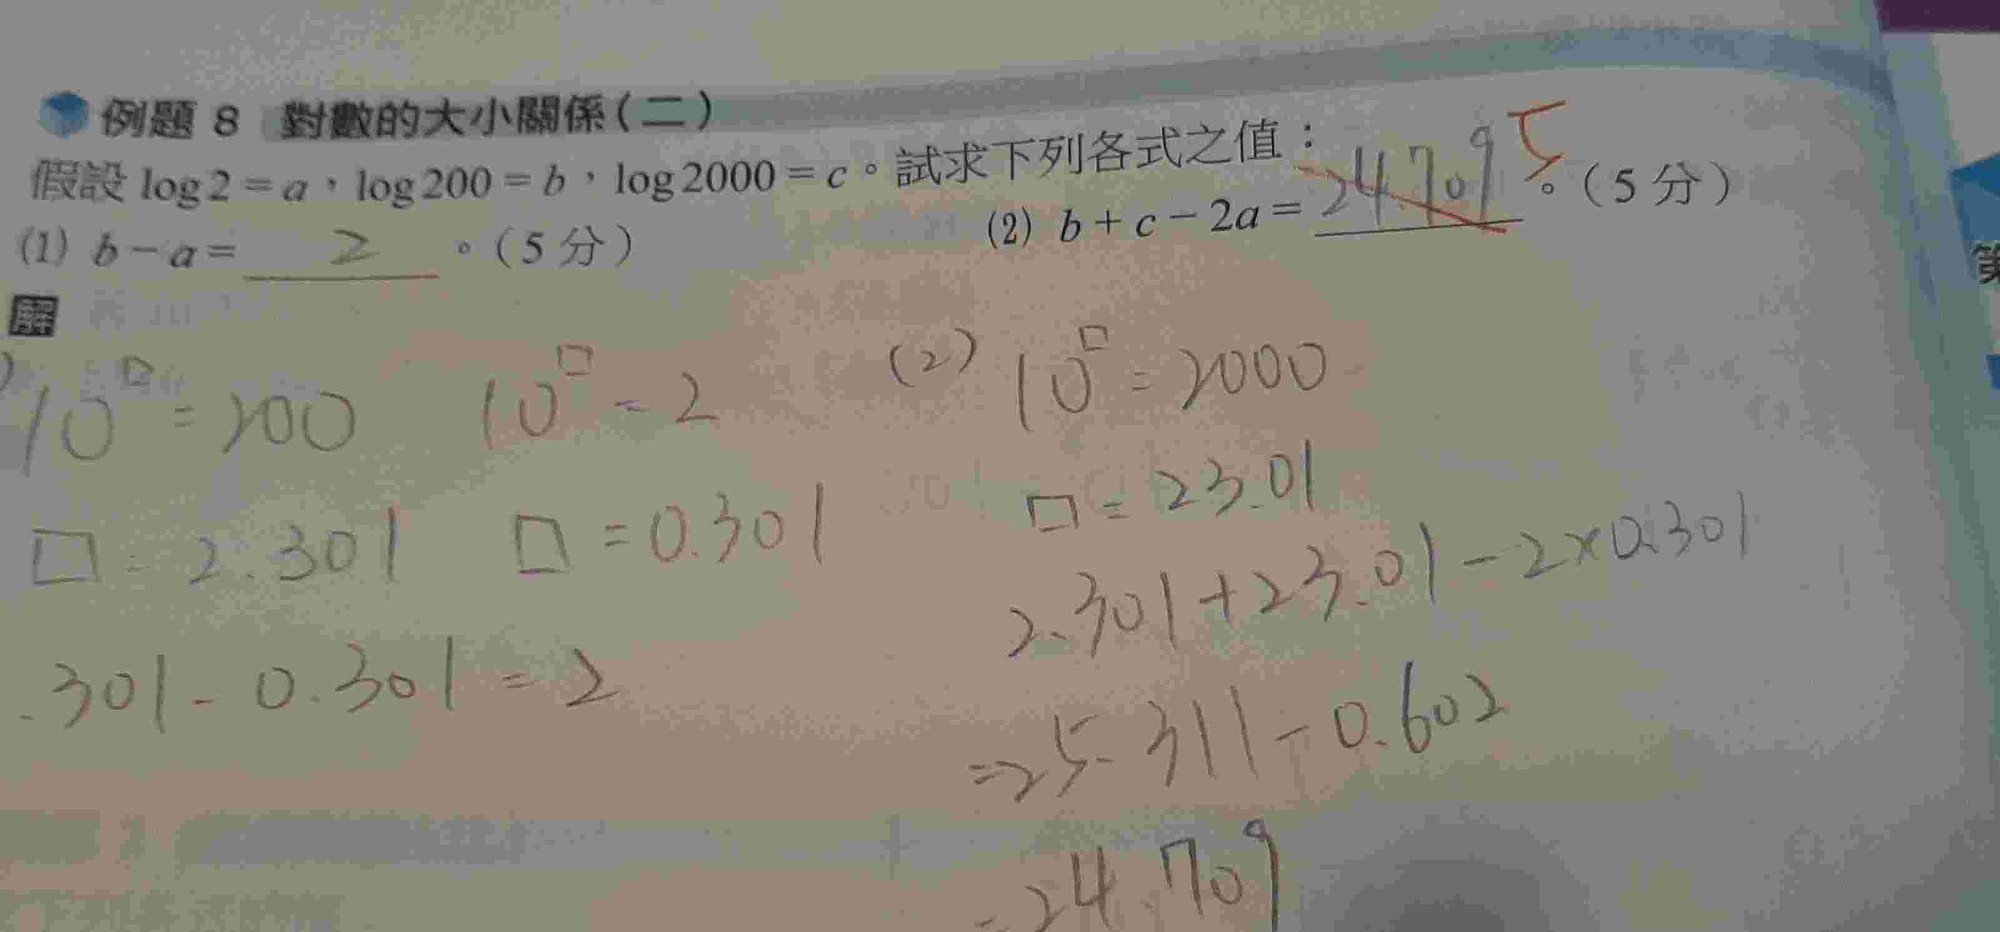 例題 8 對數的大小關係(二)
假設 log 2 = a，log 200 = b，log 2000 = c。試求下列各式之值：
(1) b − a = 2 。(5 分)
(2) b + c − 2a = 24.709 5 。(5 分)
解
) 10^□ = 200 10^□ = 2
□ = 2.301 □ = 0.301
.301 - 0.301 = 2
(2) 10^□ = 2000
□ = 23.01
2.301 + 23.01 - 2×0.301
= 25.311 - 0.602
= 24.709
第